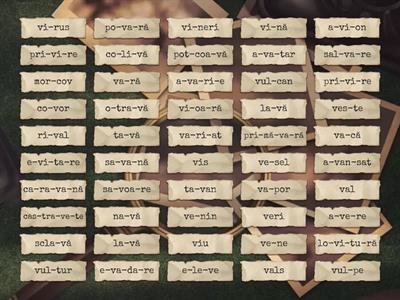 vi-rus po-va-ră vi-neri vi-nă a-vi-on
pri-vi-re co-li-vă pot-coa-vă a-va-tar sal-va-re
mor-cov va-ră a-va-ri-e vul-can pri-vi-re
co-vor o-tra-vă vi-oa-ră la-vă ves-te
ri-val ta-vă va-ri-at pri-mă-va-ră va-că
e-vi-ta-re sa-va-nă vis va-sel a-van-sat
ca-ra-va-nă sa-voa-re ta-van va-por val
cas-tra-ve-te na-vă ve-nin veri a-ve-re
scla-vă la-vă viu ve-ne lo-vi-tu-ră
vul-tur e-va-da-re e-le-ve vals vul-pe